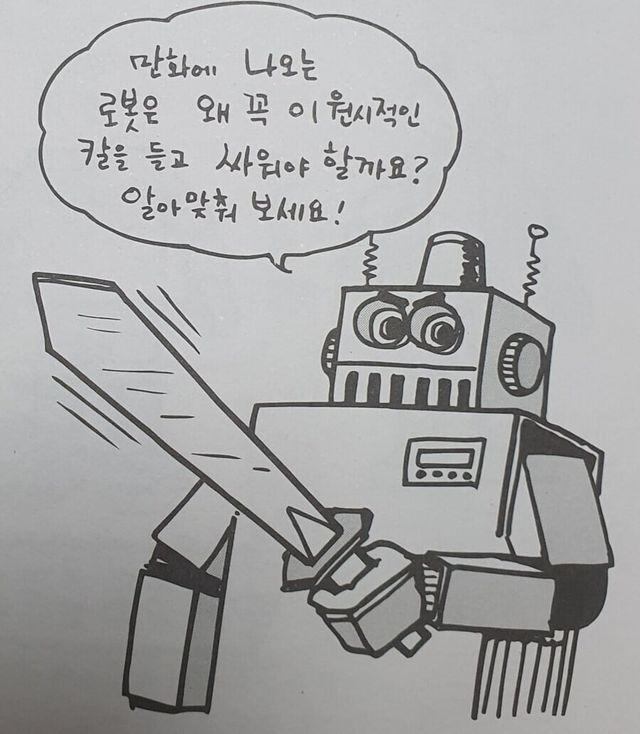 만화에 나오는
로봇은 왜 꼭 이 원시적인
칼을 들고 싸워야 할까요?
알아맞춰 보세요!